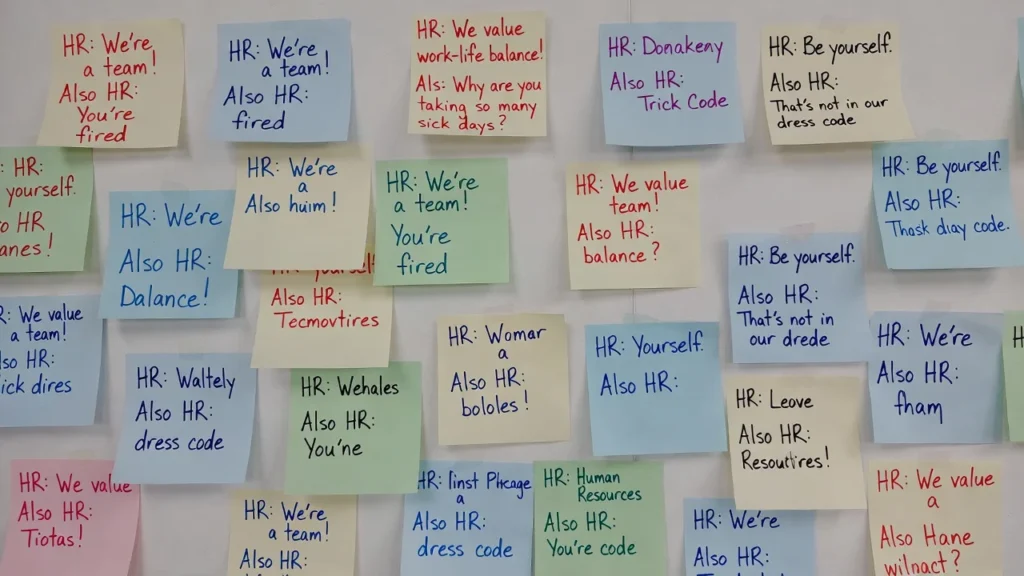 HR: We're
a team!
Also HR:
You're
fired
HR: We're
a team!
Also HR:
fired
HR: We value
work-life balance!
Als: Why are you
taking so many
sick days?
HR: Donakeny
Also HR:
Trick Code
HR: Be yourself.
Also HR:
That's not in our
dress code
HR:
yourself.
HR
anes!
HR: We're
Also HR:
Dalance!
HR: We're
a
Also huim!
HR: We're
a team!
You're
fired
HR: We value
team!
Also HR:
balance?
HR: Be yourself.
Also HR:
Thosk diay code.
yourself
Also HR:
Tecmovtires
HR: Be yourself.
Also HR:
That's not in
our drede
R: We value
a team!
so HR:
ick dires
HR: Waltely
Also HR:
dress code
HR: Wehales
Also HR:
You'ne
HR: Womar
a
Also HR:
bololes!
HR: Yourself.
Also HR:
HR: Leove
Also HR:
HR: We're
Also HR:
fham
H
HR: We value
Also HR:
Tiotas!
HR: We're
a team!
Also HR:
HR: linst
a
Also HR:
dress code
HR: Human
Resources
Also HR:
You're code
HR: We're
Also HR:
HR: We value
a
Also Hane
wilnact?